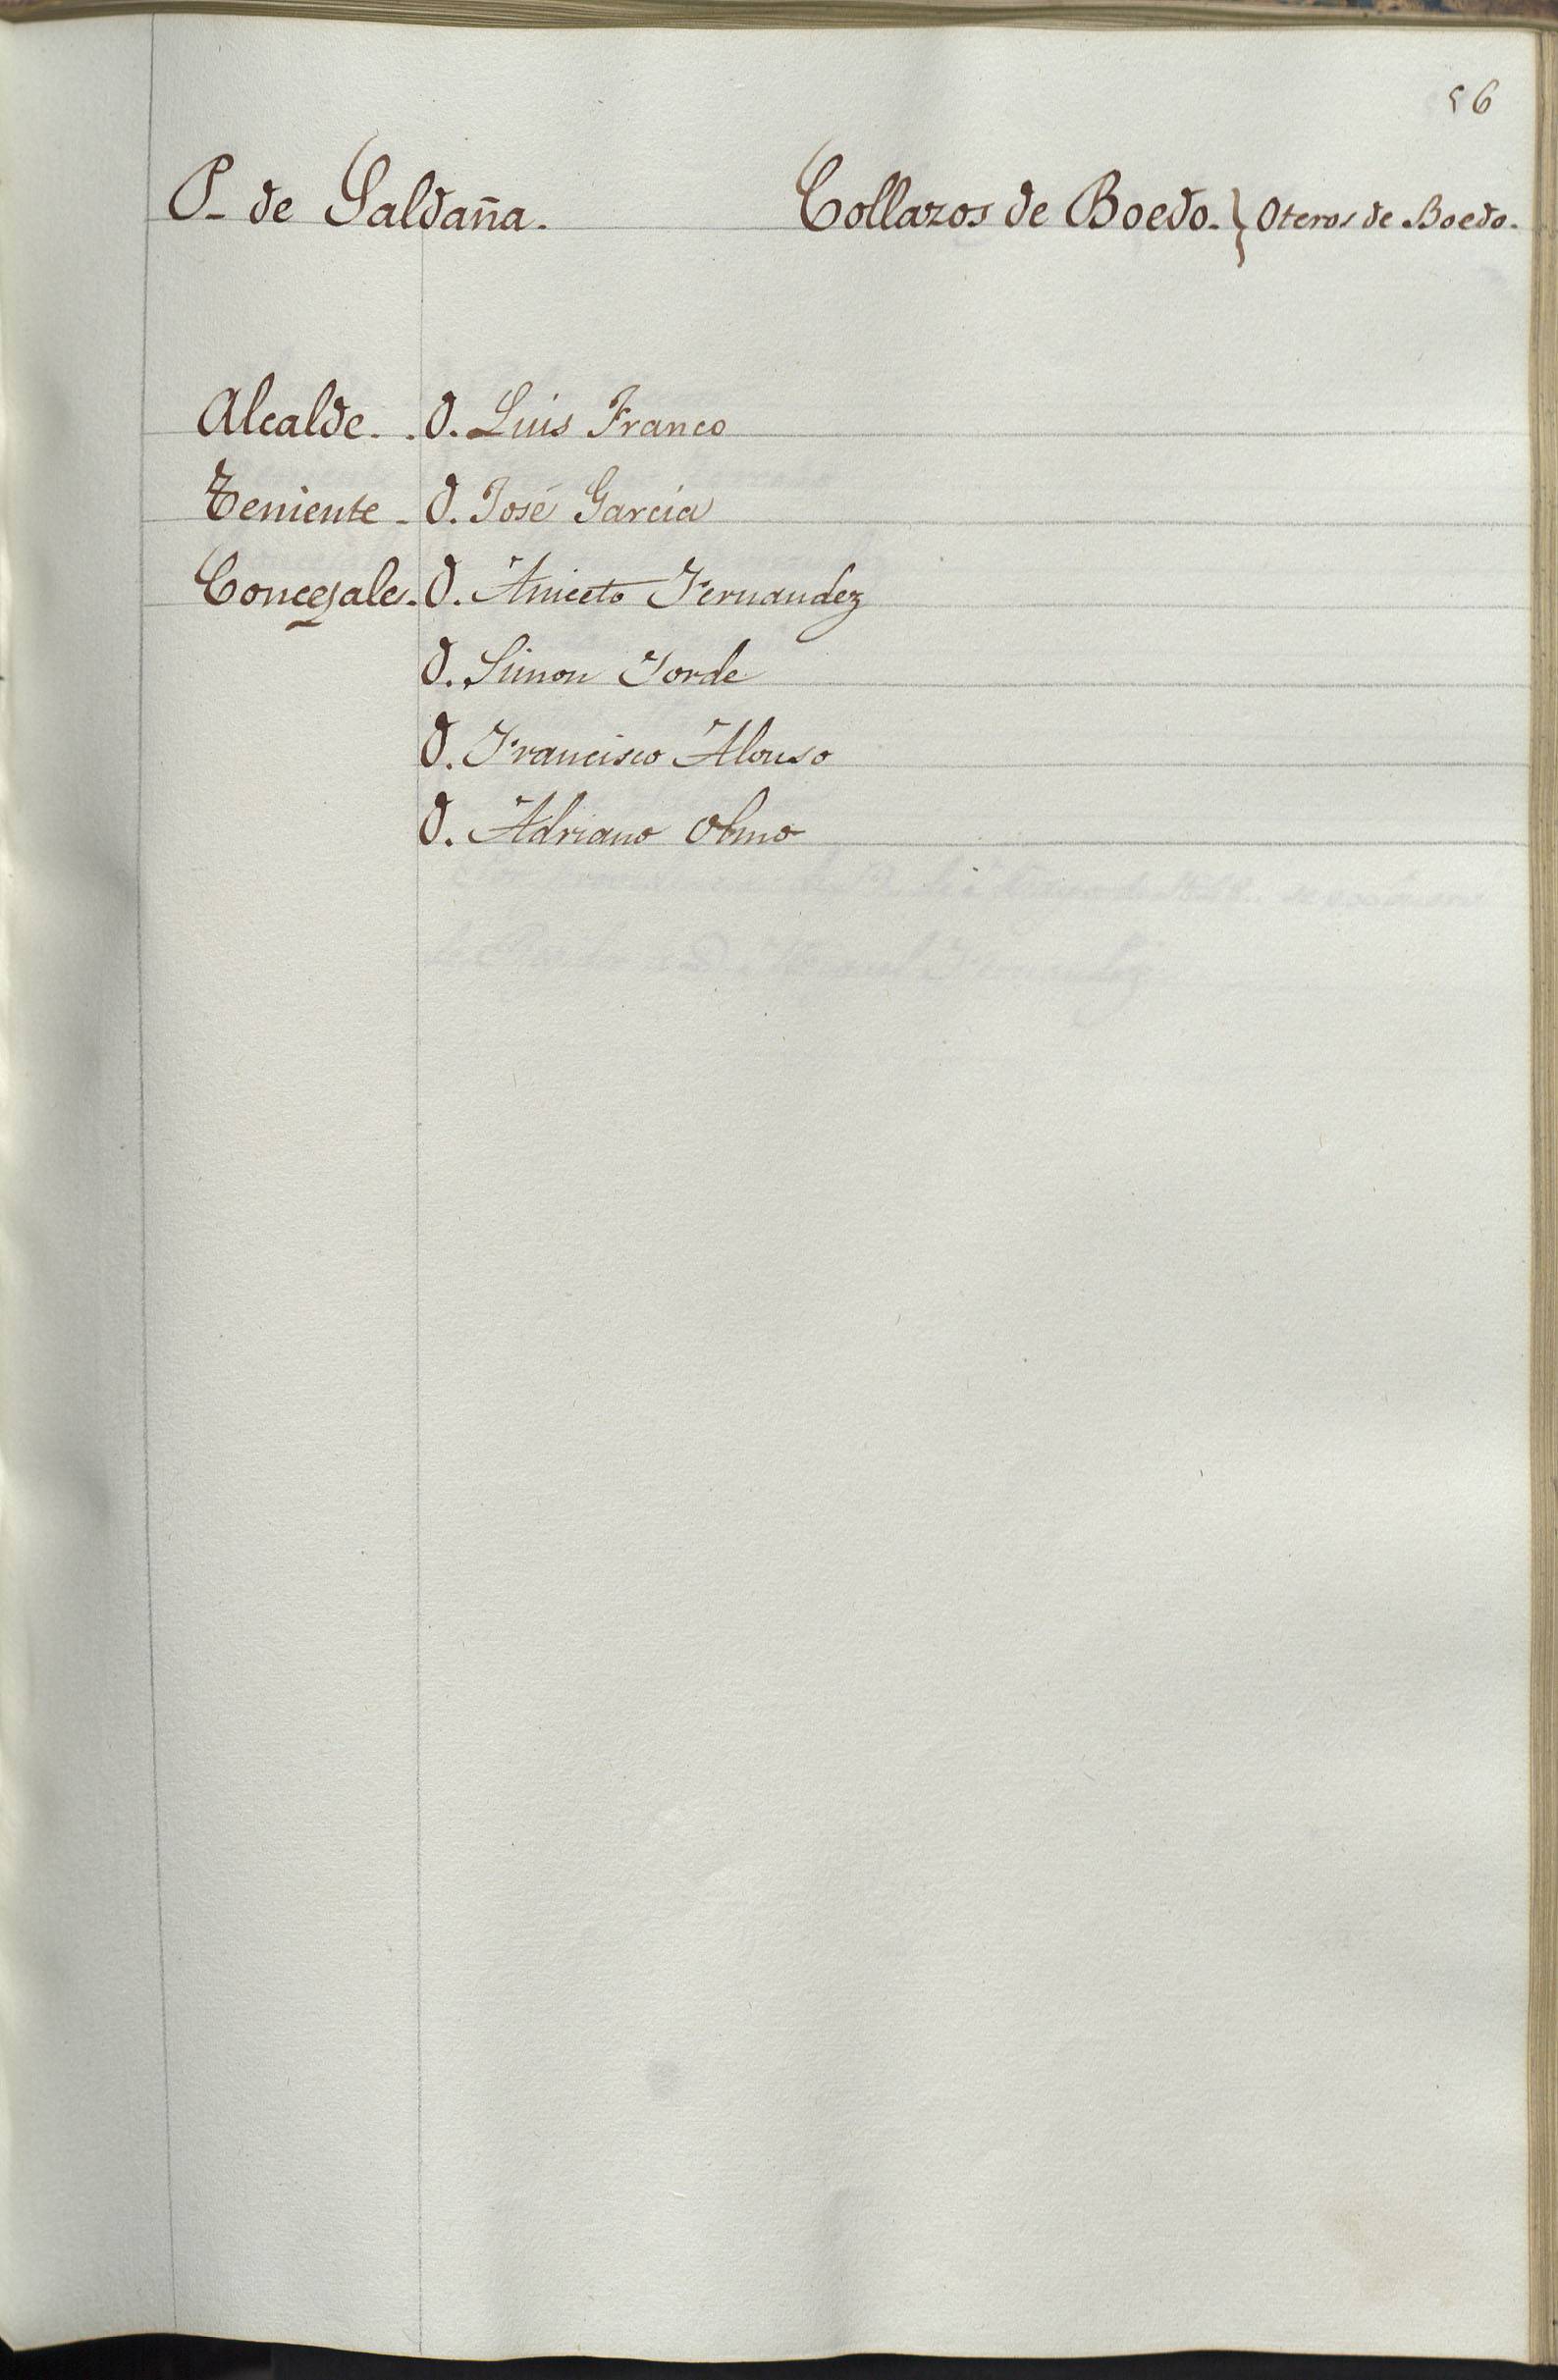 56
P- de Saldaña. Collazos de Boedo. } Oteros de Boedo.
Alcalde. . D. Luis Franco
Teniente - D. José García
Concejales. D. Aniceto Fernandez
D. Simon Torde
D. Francisco Alonso
D. Adriano Olmo